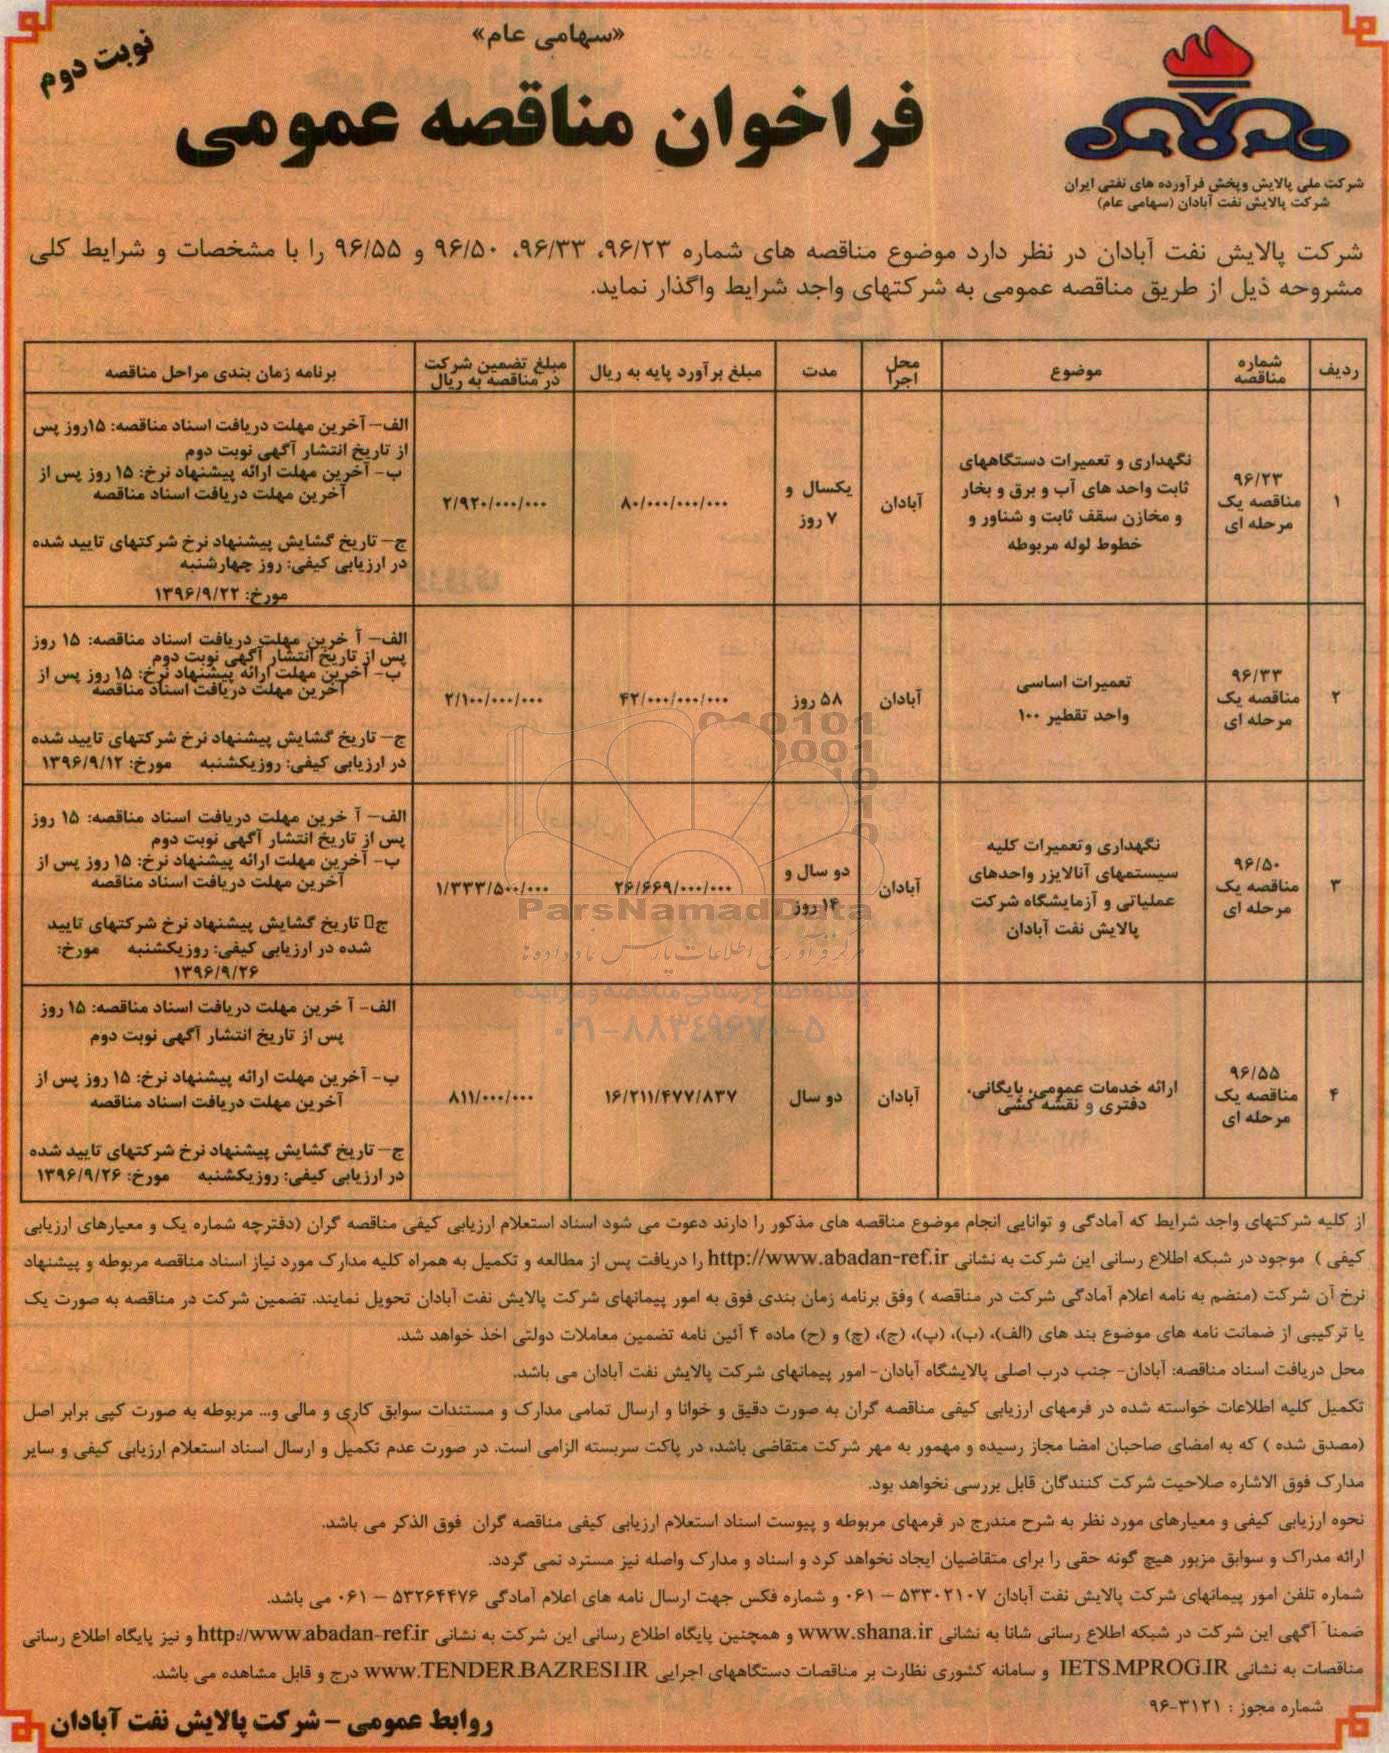 «سهامی عام»
نوبت دوم
فراخوان مناقصه عمومی
شرکت ملی پالایش وپخش فرآورده های نفتی ایران
شرکت پالایش نفت آبادان (سهامی عام)
شرکت پالایش نفت آبادان در نظر دارد موضوع مناقصه های شماره ۹۶/۲۳، ۹۶/۳۳، ۹۶/۵۰ و ۹۶/۵۵ را با مشخصات و شرایط کلی
مشروحه ذیل از طریق مناقصه عمومی به شرکتهای واجد شرایط واگذار نماید.
ردیف
شماره
مناقصه
موضوع
محل
اجرا
مدت
مبلغ برآورد پایه به ریال
مبلغ تضمین شرکت
در مناقصه به ریال
برنامه زمان بندی مراحل مناقصه
۱
۹۶/۲۳
مناقصه یک
مرحله ای
نگهداری و تعمیرات دستگاههای
ثابت واحد های آب و برق و بخار
و مخازن سقف ثابت و شناور و
خطوط لوله مربوطه
آبادان
یکسال و
۷ روز
۸۰/۰۰۰/۰۰۰/۰۰۰
۲/۹۲۰/۰۰۰/۰۰۰
الف– آخرین مهلت دریافت اسناد مناقصه: ۱۵روز پس
از تاریخ انتشار آگهی نوبت دوم
ب- آخرین مهلت ارائه پیشنهاد نرخ: ۱۵ روز پس از
آخرین مهلت دریافت اسناد مناقصه
ج– تاریخ گشایش پیشنهاد نرخ شرکتهای تایید شده
در ارزیابی کیفی: روز چهارشنبه
مورخ: ۱۳۹۶/۹/۲۲
۲
۹۶/۳۳
مناقصه یک
مرحله ای
تعمیرات اساسی
واحد تقطیر ۱۰۰
آبادان
۵۸ روز
۴۲/۰۰۰/۰۰۰/۰۰۰
۲/۱۰۰/۰۰۰/۰۰۰
الف– آ خرین مهلت دریافت اسناد مناقصه: ۱۵ روز
پس از تاریخ انتشار آگهی نوبت دوم
ب- آخرین مهلت ارائه پیشنهاد نرخ: ۱۵ روز پس از
آخرین مهلت دریافت اسناد مناقصه
ج– تاریخ گشایش پیشنهاد نرخ شرکتهای تایید شده
در ارزیابی کیفی: روزیکشنبه مورخ: ۱۳۹۶/۹/۱۲
۳
۹۶/۵۰
مناقصه یک
مرحله ای
نگهداری وتعمیرات کلیه
سیستمهای آنالایزر واحدهای
عملیاتی و آزمایشگاه شرکت
پالایش نفت آبادان
آبادان
دو سال و
۱۴ روز
۲۶/۶۶۹/۰۰۰/۰۰۰
۱/۳۳۳/۵۰۰/۰۰۰
الف– آ خرین مهلت دریافت اسناد مناقصه: ۱۵ روز
پس از تاریخ انتشار آگهی نوبت دوم
ب- آخرین مهلت ارائه پیشنهاد نرخ: ۱۵ روز پس از
آخرین مهلت دریافت اسناد مناقصه
ج▯ تاریخ گشایش پیشنهاد نرخ شرکتهای تایید
شده در ارزیابی کیفی: روزیکشنبه مورخ:
۱۳۹۶/۹/۲۶
۴
۹۶/۵۵
مناقصه یک
مرحله ای
ارائه خدمات عمومی، بایگانی،
دفتری و نقشه کشی
آبادان
دو سال
۱۶/۲۱۱/۴۷۷/۸۳۷
۸۱۱/۰۰۰/۰۰۰
الف- آ خرین مهلت دریافت اسناد مناقصه: ۱۵ روز
پس از تاریخ انتشار آگهی نوبت دوم
ب- آخرین مهلت ارائه پیشنهاد نرخ: ۱۵ روز پس از
آخرین مهلت دریافت اسناد مناقصه
ج– تاریخ گشایش پیشنهاد نرخ شرکتهای تایید شده
در ارزیابی کیفی: روزیکشنبه مورخ: ۱۳۹۶/۹/۲۶
ParsNamadData
مرکز فرآوری اطلاعات پارس نماد داده ها
پایگاه اطلاع رسانی مناقصه و مزایده
۰۲۱-۸۸۳۴۹۶۷۰-۵
از کلیه شرکتهای واجد شرایط که آمادگی و توانایی انجام موضوع مناقصه های مذکور را دارند دعوت می شود اسناد استعلام ارزیابی کیفی مناقصه گران (دفترچه شماره یک و معیارهای ارزیابی
کیفی ) موجود در شبکه اطلاع رسانی این شرکت به نشانی http://www.abadan-ref.ir را دریافت پس از مطالعه و تکمیل به همراه کلیه مدارک مورد نیاز اسناد مناقصه مربوطه و پیشنهاد
نرخ آن شرکت (منضم به نامه اعلام آمادگی شرکت در مناقصه ) وفق برنامه زمان بندی فوق به امور پیمانهای شرکت پالایش نفت آبادان تحویل نمایند. تضمین شرکت در مناقصه به صورت یک
یا ترکیبی از ضمانت نامه های موضوع بند های (الف)، (ب)، (پ)، (ج)، (چ) و (ح) ماده ۴ آئین نامه تضمین معاملات دولتی اخذ خواهد شد.
محل دریافت اسناد مناقصه: آبادان- جنب درب اصلی پالایشگاه آبادان- امور پیمانهای شرکت پالایش نفت آبادان می باشد.
تکمیل کلیه اطلاعات خواسته شده در فرمهای ارزیابی کیفی مناقصه گران به صورت دقیق و خوانا و ارسال تمامی مدارک و مستندات سوابق کاری و مالی و... مربوطه به صورت کپی برابر اصل
(مصدق شده ) که به امضای صاحبان امضا مجاز رسیده و مهمور به مهر شرکت متقاضی باشد، در پاکت سربسته الزامی است. در صورت عدم تکمیل و ارسال اسناد استعلام ارزیابی کیفی و سایر
مدارک فوق الاشاره صلاحیت شرکت کنندگان قابل بررسی نخواهد بود.
نحوه ارزیابی کیفی و معیارهای مورد نظر به شرح مندرج در فرمهای مربوطه و پیوست اسناد استعلام ارزیابی کیفی مناقصه گران فوق الذکر می باشد.
ارائه مدراک و سوابق مزبور هیچ گونه حقی را برای متقاضیان ایجاد نخواهد کرد و اسناد و مدارک واصله نیز مسترد نمی گردد.
شماره تلفن امور پیمانهای شرکت پالایش نفت آبادان ۵۳۳۰۲۱۰۷ – ۰۶۱ و شماره فکس جهت ارسال نامه های اعلام آمادگی ۵۳۲۶۴۴۷۶ – ۰۶۱ می باشد.
ضمناً آگهی این شرکت در شبکه اطلاع رسانی شانا به نشانی www.shana.ir و همچنین پایگاه اطلاع رسانی این شرکت به نشانی http://www.abadan-ref.ir و نیز پایگاه اطلاع رسانی
مناقصات به نشانی IETS.MPROG.IR و سامانه کشوری نظارت بر مناقصات دستگاههای اجرایی www.TENDER.BAZRESI.IR درج و قابل مشاهده می باشد.
شماره مجوز : ۳۱۲۱-۹۶
روابط عمومی – شرکت پالایش نفت آبادان